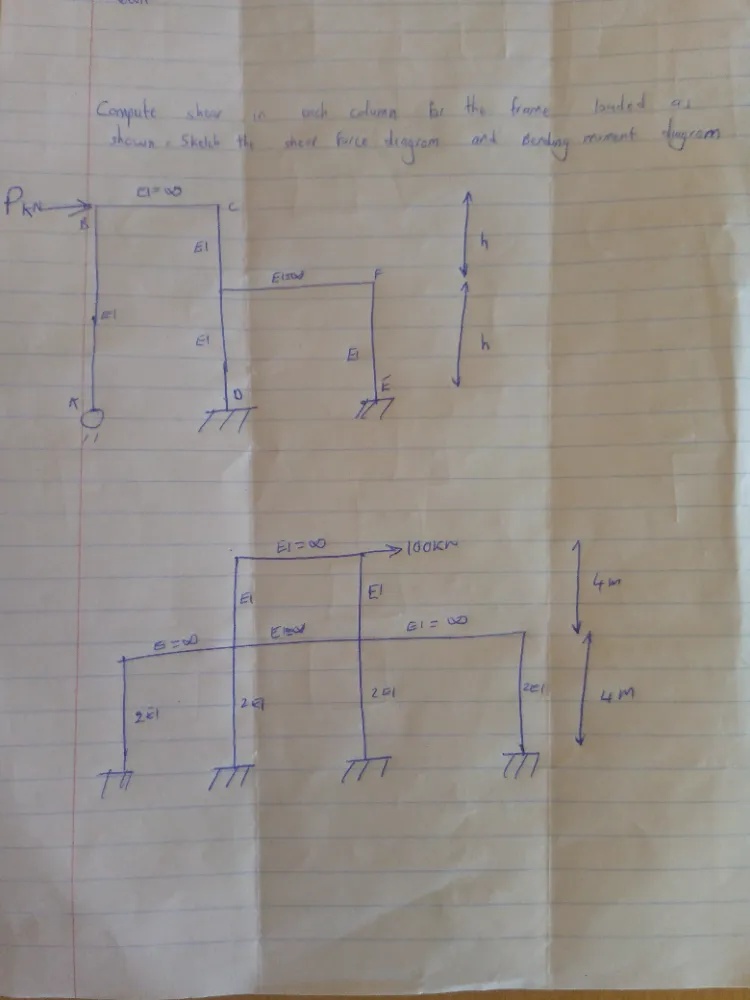 Compute shear in each column for the frame loaded as
shown. Sketch the shear force diagram and Bending moment diagram
PKN
EI=∞
B
C
EI
h
EI=∞
F
EI
EI
EI
h
A
D
E
EI=∞
100KN
EI
EI
4m
E=∞
E=∞
EI=∞
2EI
2EI
2EI
2EI
4M